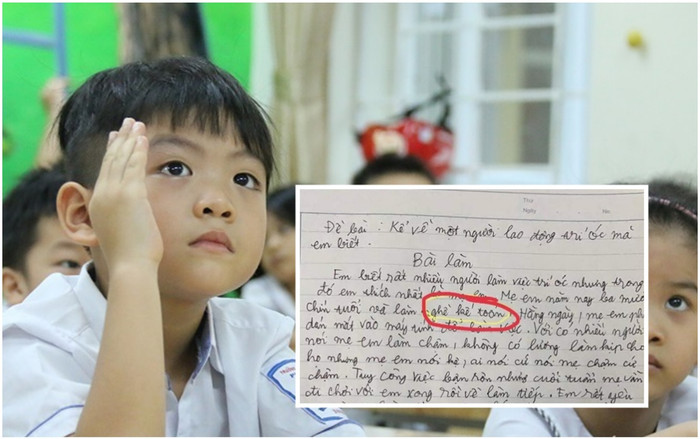 Thứ
Ngày
No
Đề bài : Kể về một người lao động trí óc mà
em biết.
Bài làm
Em biết rất nhiều người làm việc trí óc nhưng trong
đó em thích nhất là mẹ em. Mẹ em năm nay ba mươi
chín tuổi và làm nghề kế toán. Hằng ngày, mẹ em phải
dán mắt vào máy tính để làm việc. Vì có nhiều người
nói mẹ em làm chậm, không có lương làm kịp cho
họ nhưng mẹ em nói kệ, ai nói cứ nói mẹ chậm cứ
chậm. Tuy công việc bận rộn nhưng cuối tuần mẹ vẫn
đi chơi với em xong rồi về làm tiếp. Em rất yêu